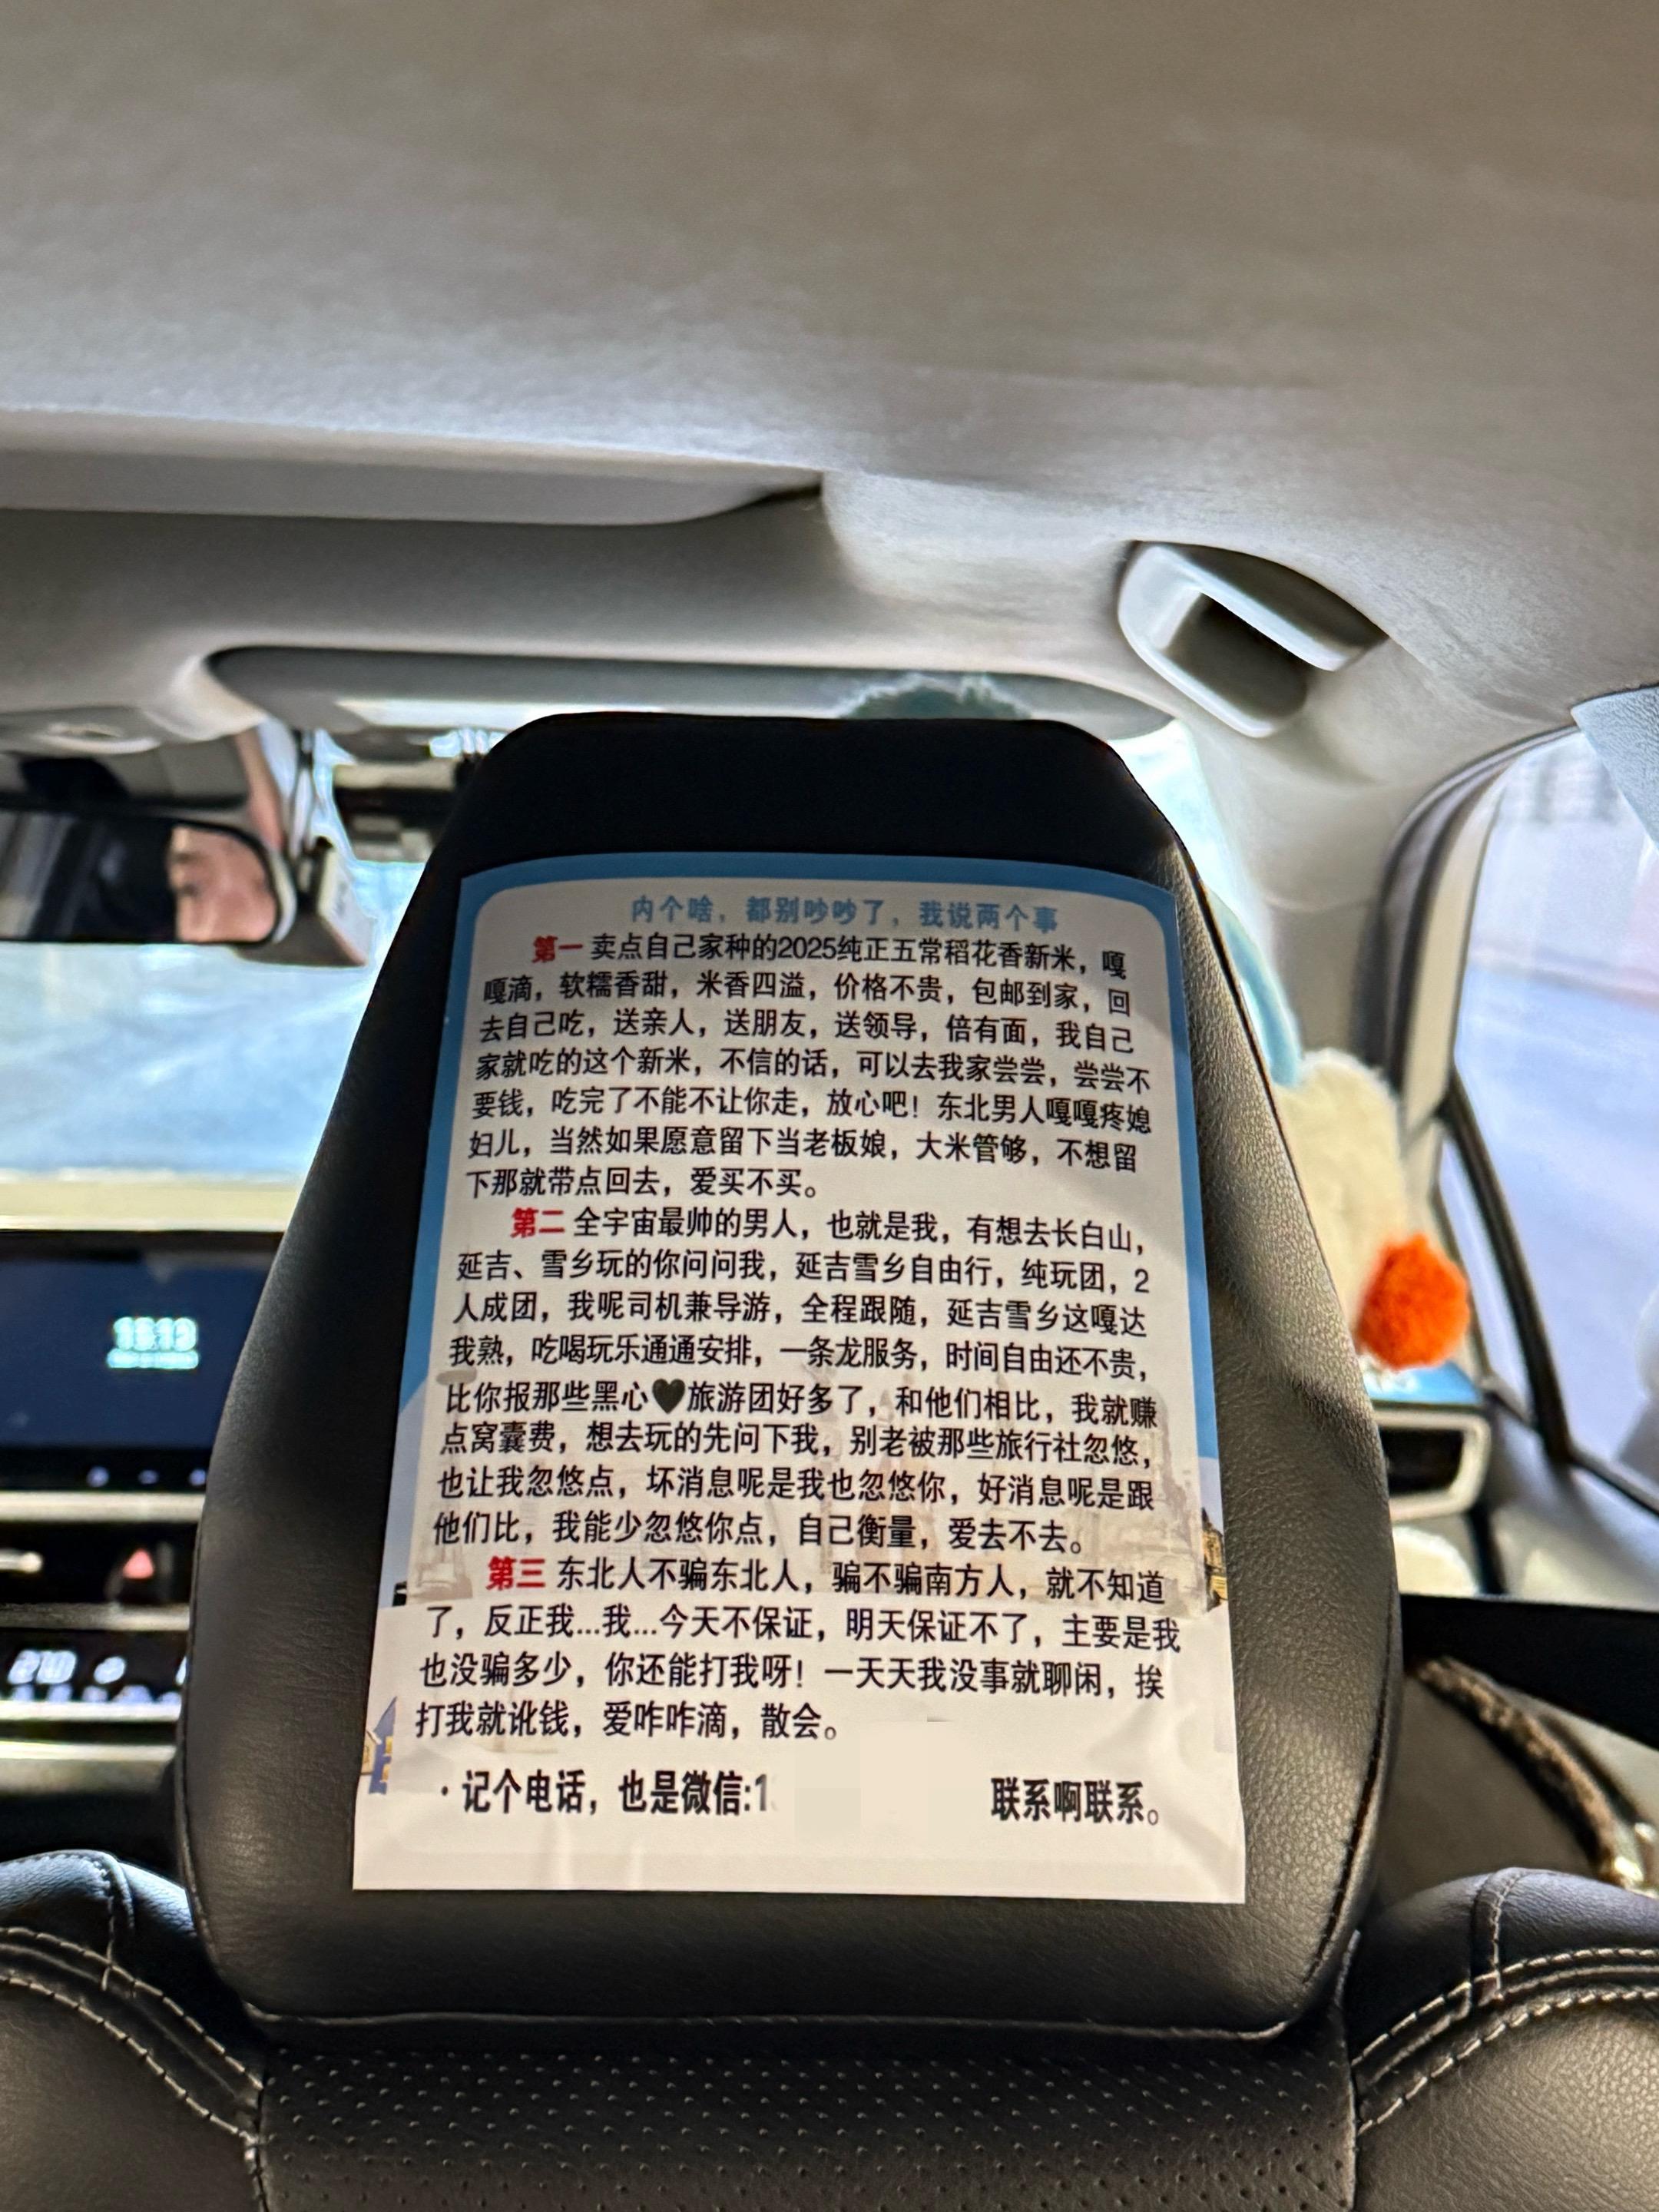 内个啥，都别吵吵了，我说两个事
第一 卖点自己家种的2025纯正五常稻花香新米，嘎
嘎滴，软糯香甜，米香四溢，价格不贵，包邮到家，回
去自己吃，送亲人，送朋友，送领导，倍有面，我自己
家就吃的这个新米，不信的话，可以去我家尝尝，尝尝不
要钱，吃完了不能不让你走，放心吧！东北男人嘎嘎疼媳
妇儿，当然如果愿意留下当老板娘，大米管够，不想留
下那就带点回去，爱买不买。
第二 全宇宙最帅的男人，也就是我，有想去长白山，
延吉、雪乡玩的你问问我，延吉雪乡自由行，纯玩团，2
人成团，我呢司机兼导游，全程跟随，延吉雪乡这嘎达
我熟，吃喝玩乐通通安排，一条龙服务，时间自由还不贵，
比你报那些黑心🖤旅游团好多了，和他们相比，我就赚
点窝囊费，想去玩的先问下我，别老被那些旅行社忽悠，
也让我忽悠点，坏消息呢是我也忽悠你，好消息呢是跟
他们比，我能少忽悠你点，自己衡量，爱去不去。
第三 东北人不骗东北人，骗不骗南方人，就不知道
了，反正我...我...今天不保证，明天保证不了，主要是我
也没骗多少，你还能打我呀！一天天我没事就聊闲，挨
打我就讹钱，爱咋咋滴，散会。
·记个电话，也是微信:1 联系啊联系。